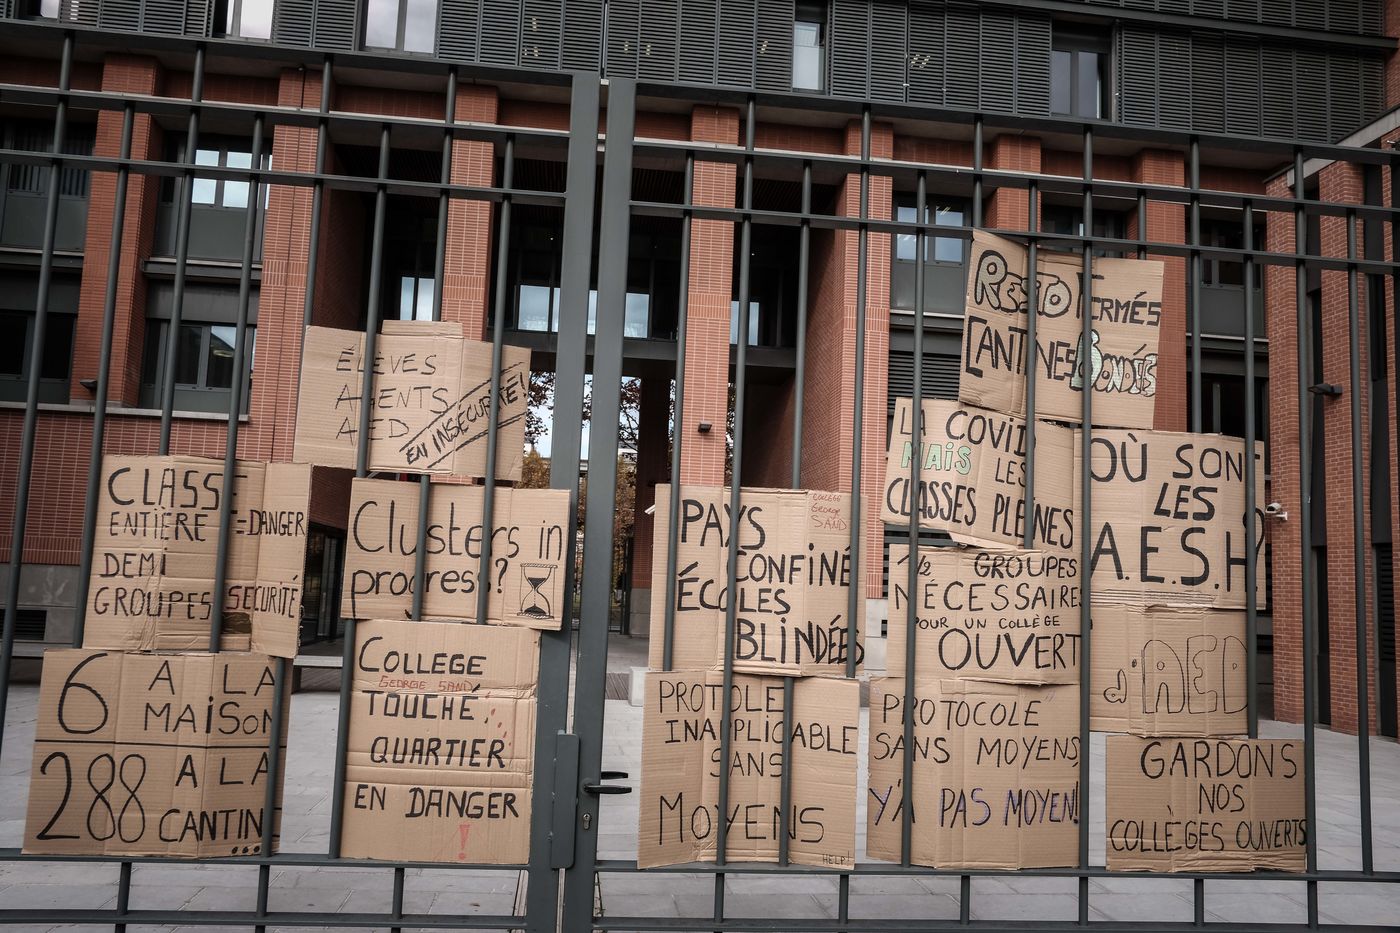 ÉLÈVES
AGENTS
AED
EN INSÉCURITÉ!
CLASSE
ENTIÈRE = DANGER
DEMI
GROUPES = SÉCURITÉ
Clusters in
progress?
6 A LA
MAISON
288 A LA
CANTINE...
COLLEGE
GEORGE SAND
TOUCHÉ.
QUARTIER
EN DANGER
!
PAYS
CONFINÉ
ÉCOLES
BLINDÉES
COLLÈGE
GEORGE
SAND
PROTOCOLE
INAPPLICABLE
SANS
MOYENS
HELP!
RESTO FERMÉS
CANTINES BONDÉES
LA COVID
MAIS LES
CLASSES PLEINES
1/2 GROUPES
NÉCESSAIRES
POUR UN COLLÈGE
OUVERT
PROTOCOLE
SANS MOYENS,
Y'A PAS MOYEN!
OÙ SONT
LES
A.E.S.H?
d'AED
GARDONS
NOS
COLLÈGES OUVERTS